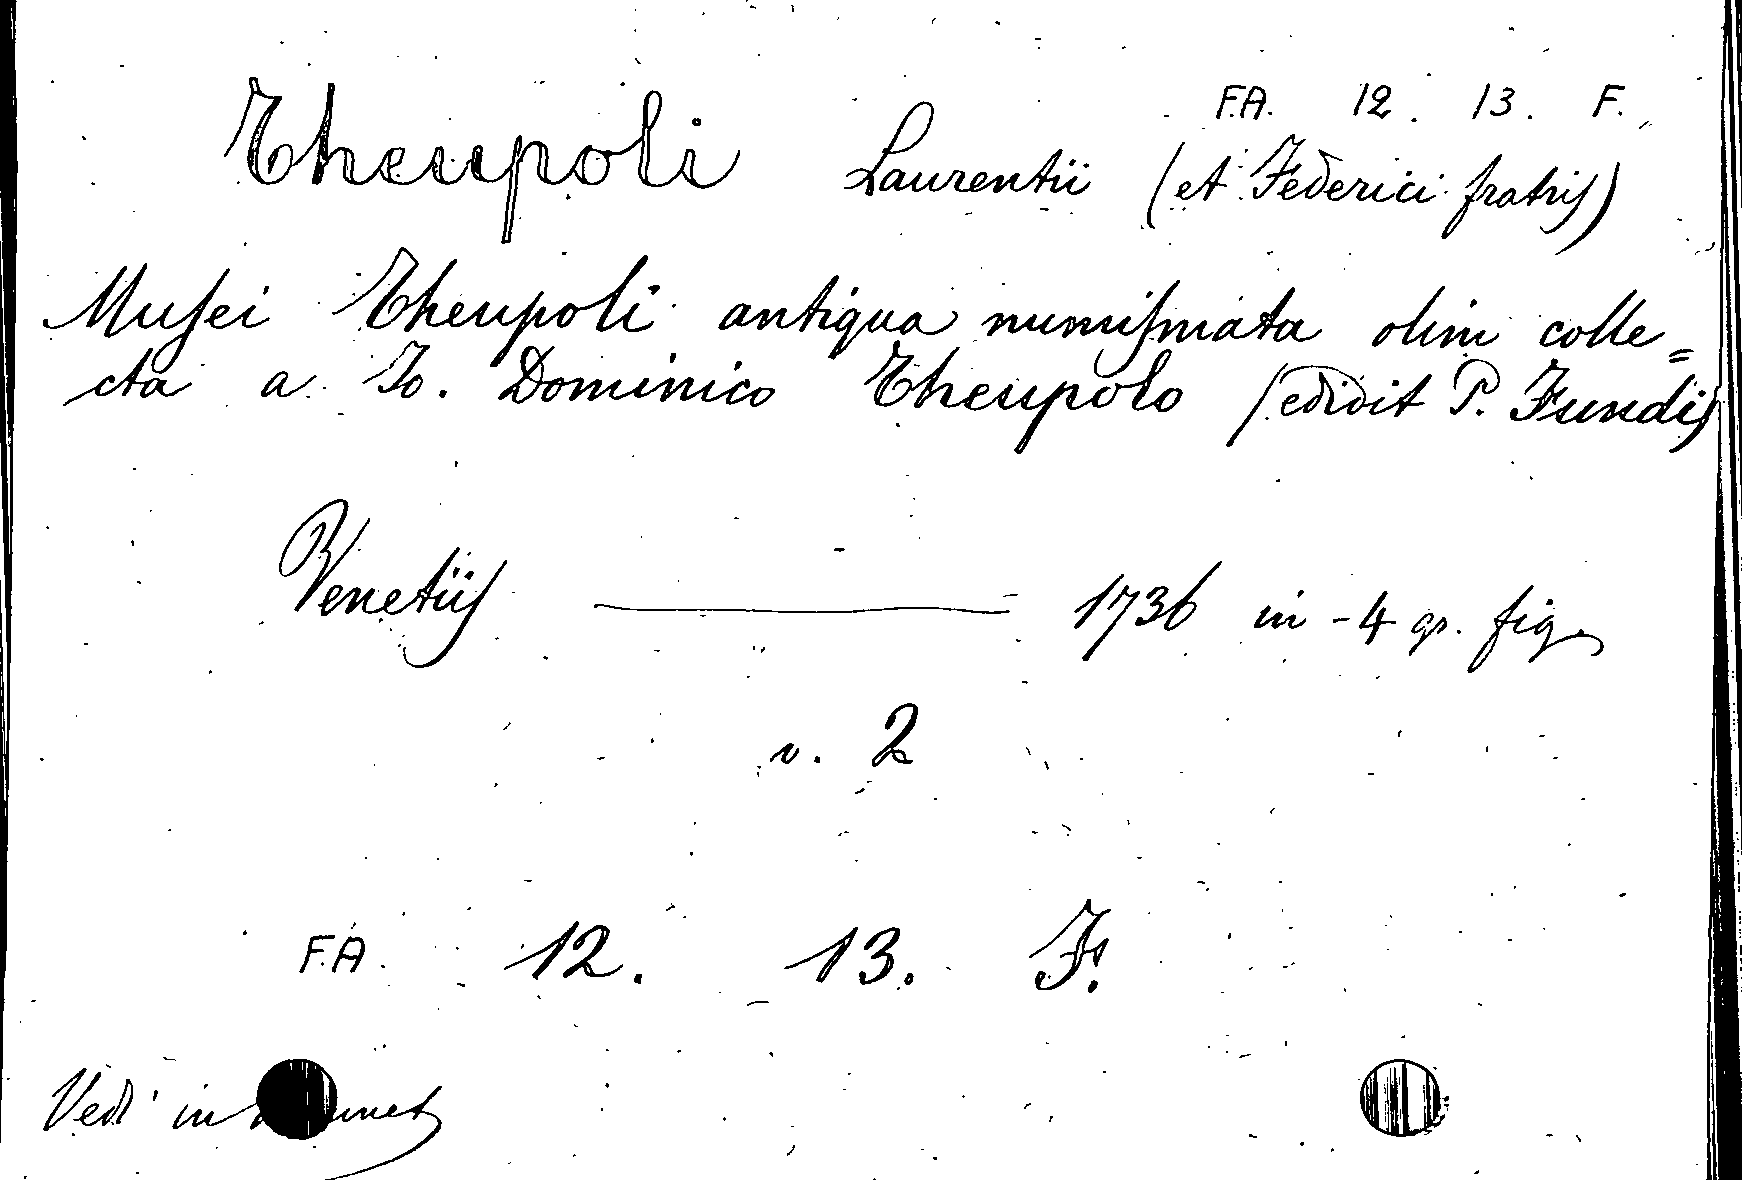 F.A. 12. 13. F.
Theupoli Laurentii (et Federici fratris)
Musei Theupoli antiqua numismata olim colle=
cta a Io. Dominico Theupolo (edidit P. Fundis
Venetiis — 1736 in-4 gr. fig.
v. 2
F.A. 12. 13. F.
Vedi in